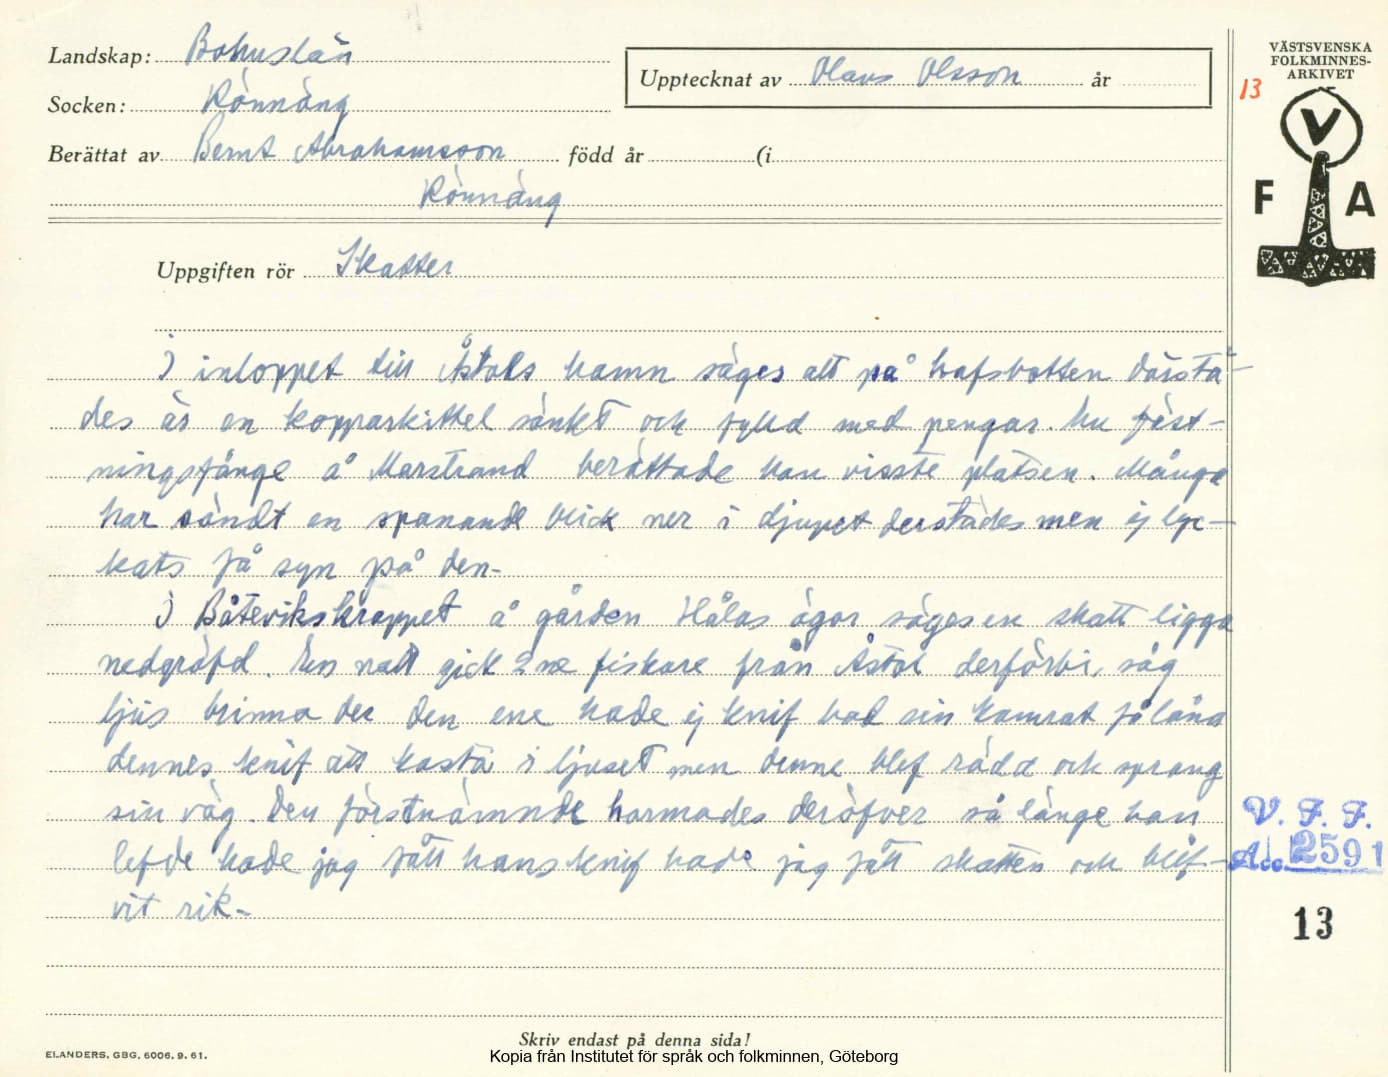 Landskap: Bohuslän
Socken: Rönnäng
Berättat av Bernt Abrahamsson född år (i
Rönnäng
Upptecknat av Olaus Olsson år
VÄSTSVENSKA
FOLKMINNES-
ARKIVET
13
V
F A
Uppgiften rör Skatter
I inloppet till Åstols hamn säges att på hafsbotten därstä-
des är en kopparkittel sänkt och fylld med pengar. En fäst-
ningsfånge å Marstrand berättade han visste platsen. Många
har sändt en spanande blick ner i djupet derstädes men ej lyc-
kats få syn på den-
I Båtevikskroppet å gården Hålas ägor säges en skatt ligga
nedgräfd. En natt gick 2ne fiskare från Åstol derförbi, såg
ljus brinna der den ene hade ej knif bad sin kamrat få låna
dennes knif att kasta i ljuset men denne blef rädd och sprang
sin väg. Den förstnämnde harmades deröfver så länge han
lefde hade jag fått hans knif hade jag fått skatten och blif-
vit rik-
V. F. F.
Acc. 2591
13
Skriv endast på denna sida!
ELANDERS, GBG. 6006. 9. 61.
Kopia från Institutet för språk och folkminnen, Göteborg